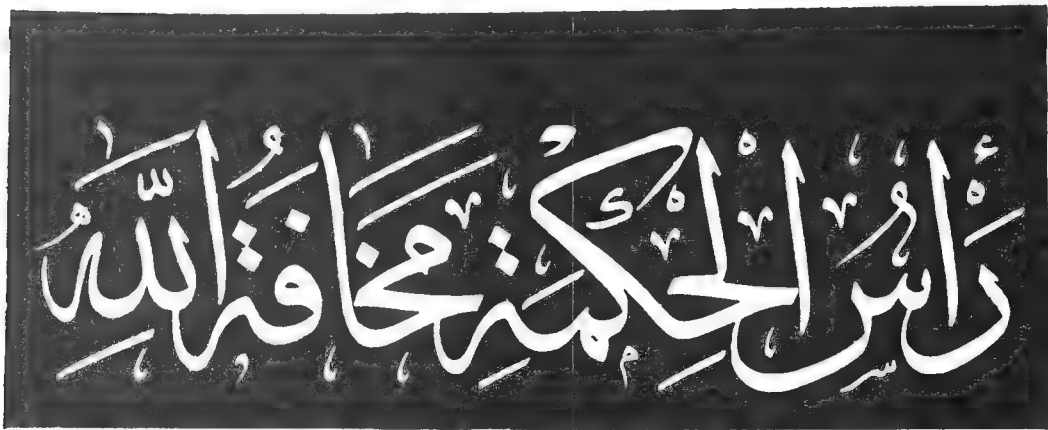 رَأْسُ الْحِكْمَةِ مَخَافَةُ اللَّهِ